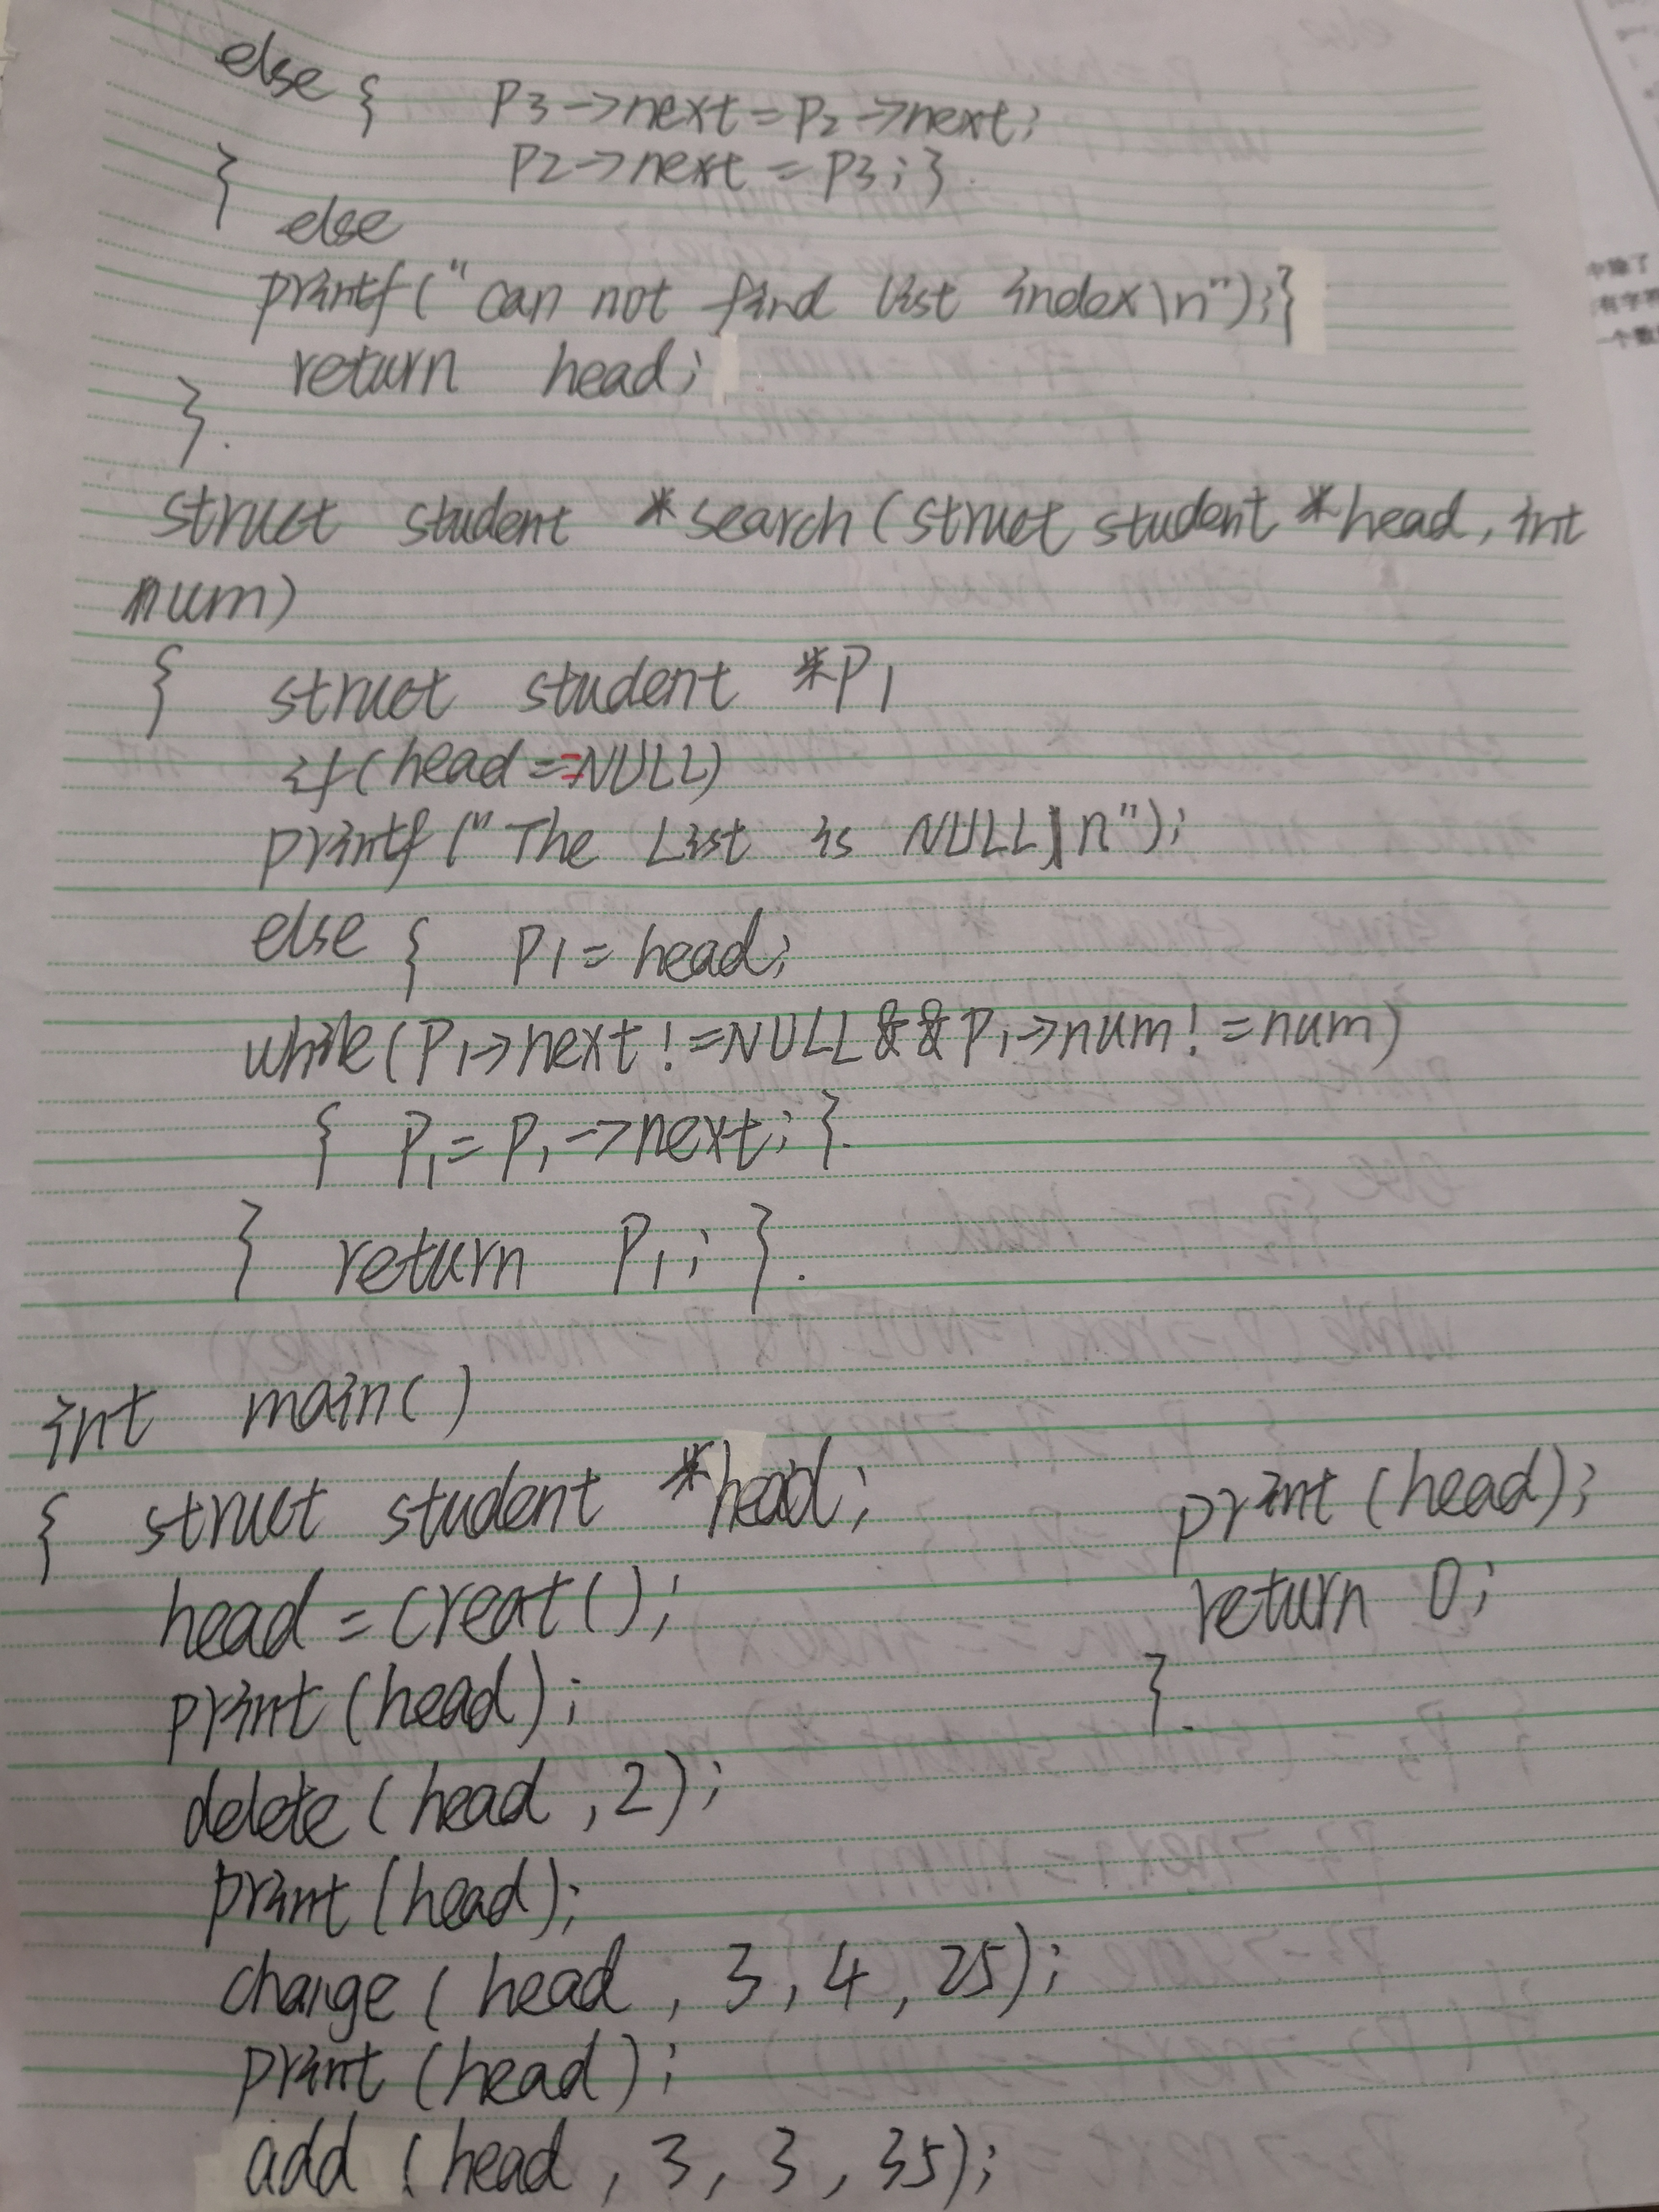 else {    P3->next=P2->next;
}    P2->next = P3;}.
else
printf("can not find list index\n");}
return head;
}.
struct student *search(struct student *head, int
num)
{ struct student *P1
if(head==NULL)
printf("The List is NULL\n");
else { P1=head;
while(P1->next!=NULL&&P1->num!=num)
{ P1=P1->next;}.
} return P1; }.
int main()
{ struct student *head;
head=creat();
print(head);
delete(head,2);
print(head);
change(head,3,4,25);
print(head);
add(head,3,3,35);
print(head);
return 0;
}.
中除了
有字符
一个数